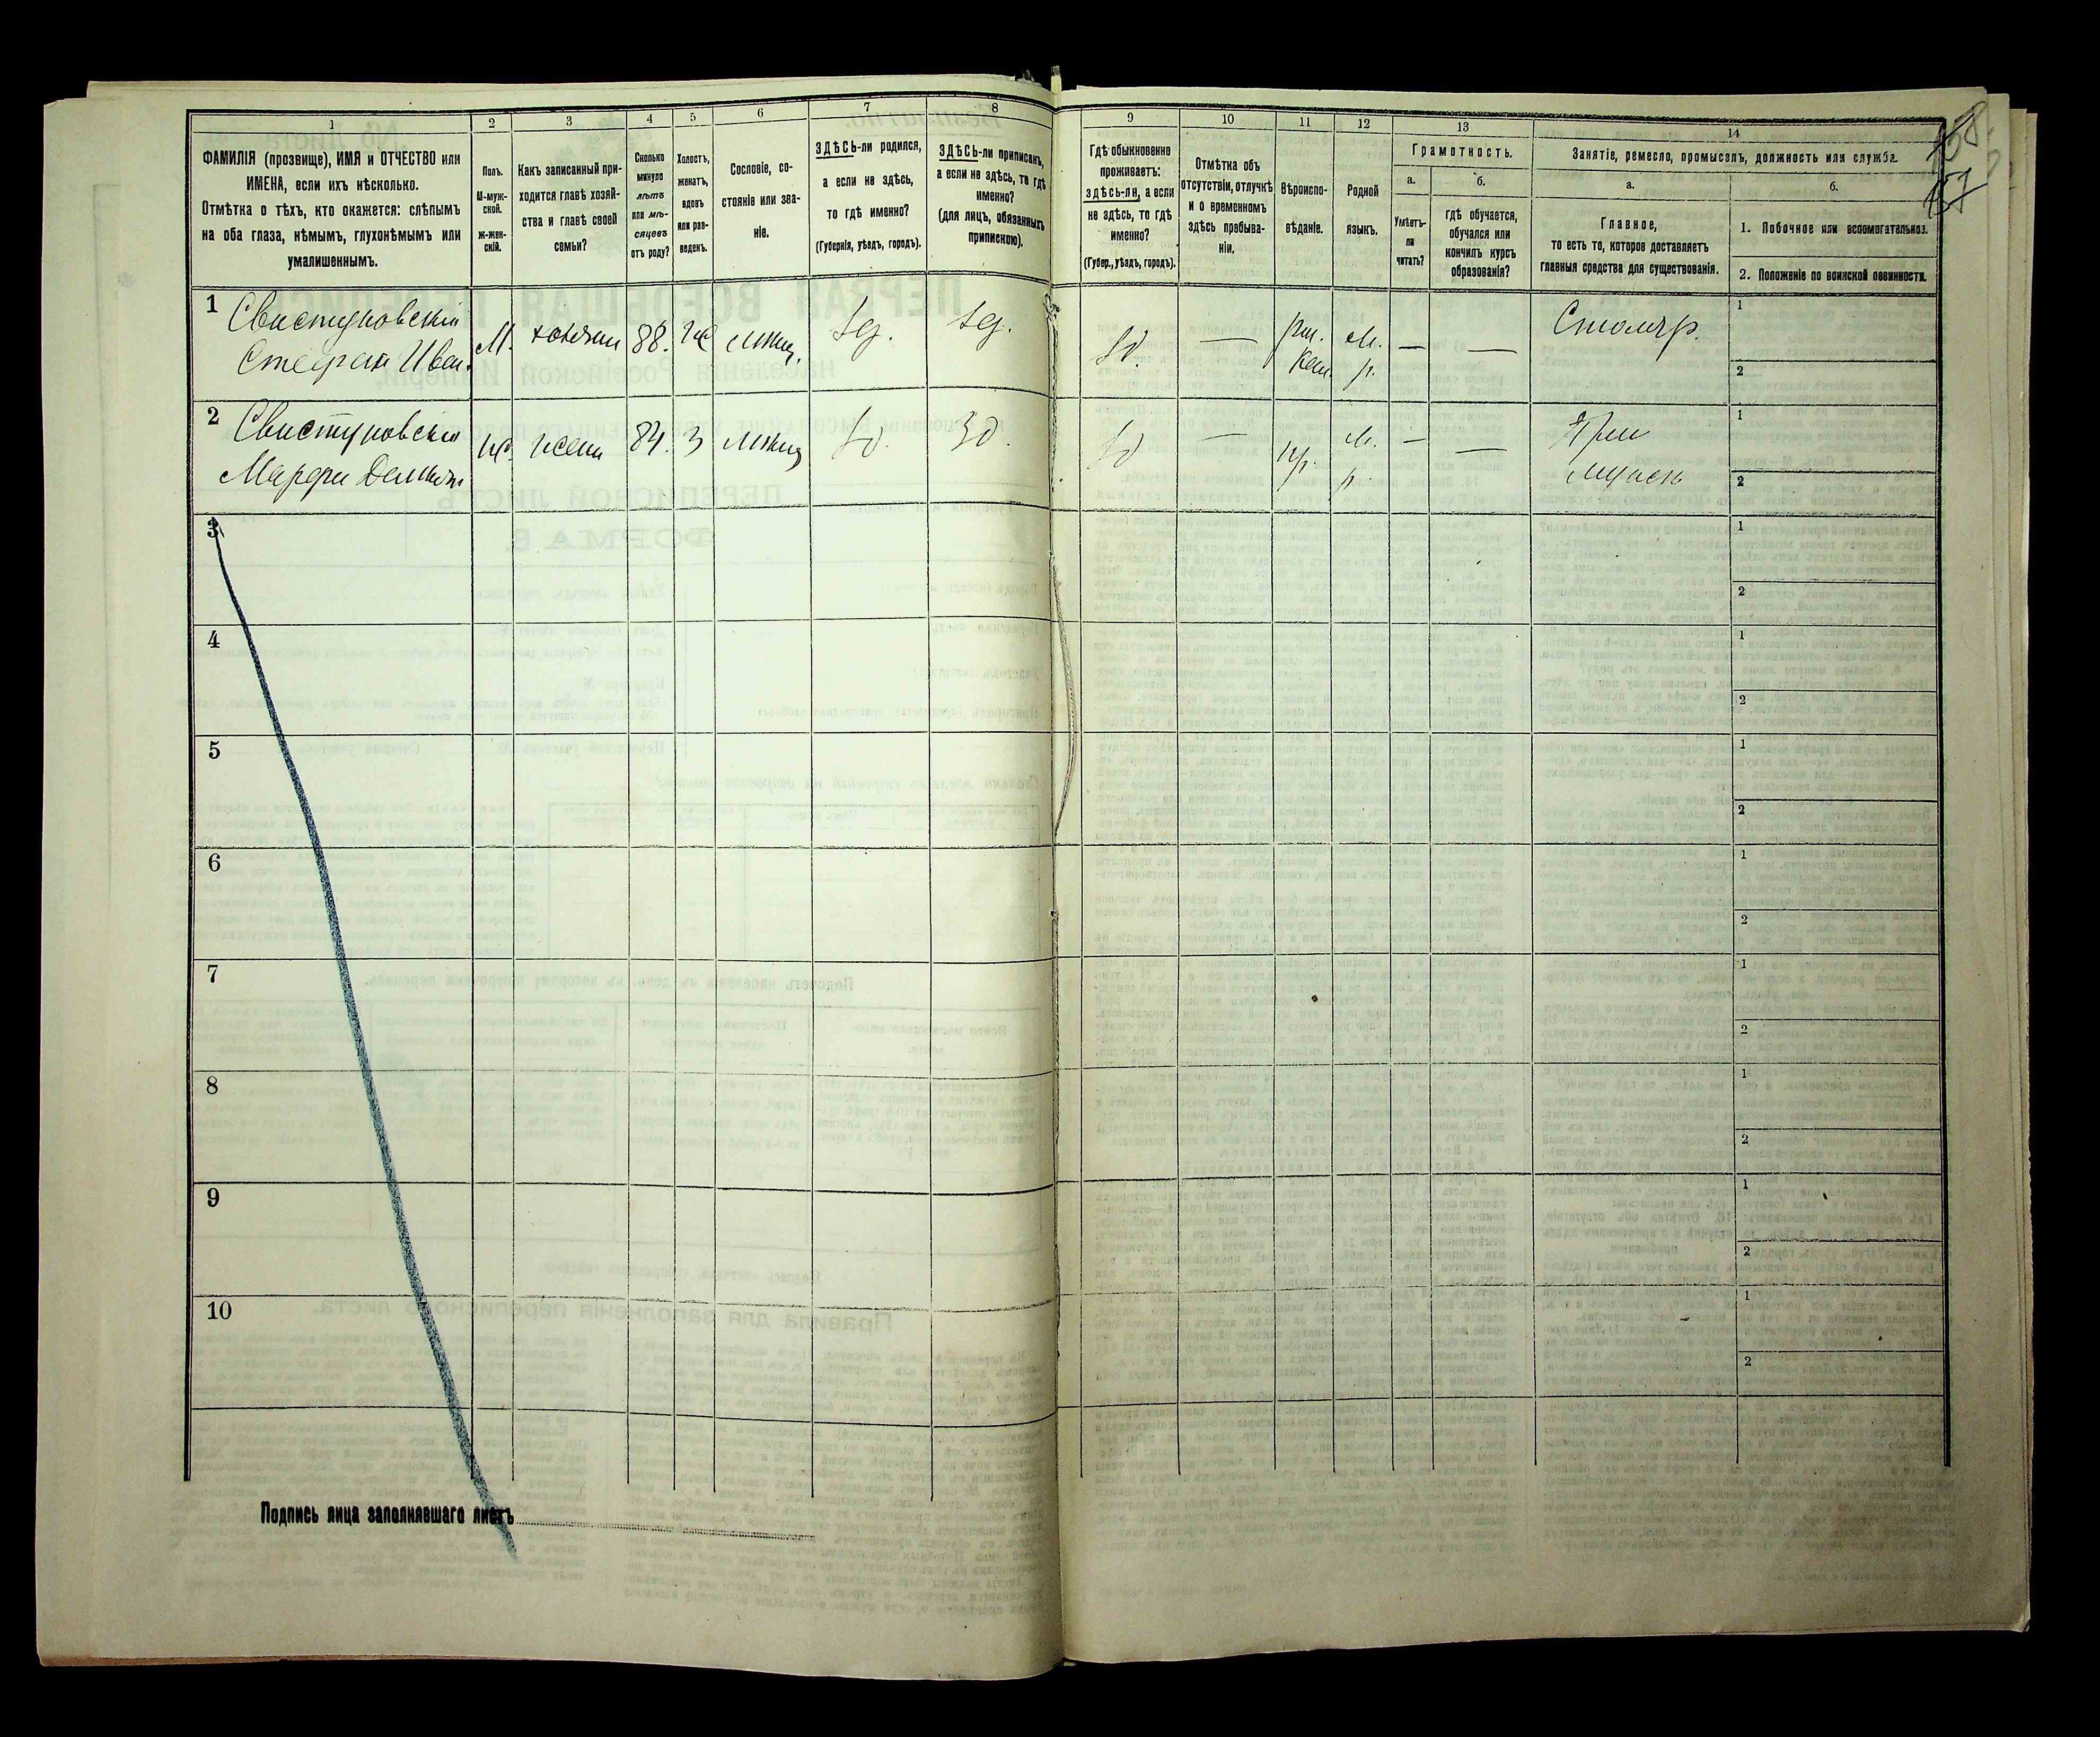 1
ФАМИЛІЯ (прозвище), ИМЯ и ОТЧЕСТВО или
ИМЕНА, если ихъ нѣсколько.
Отмѣтка о тѣхъ, кто окажется: слѣпымъ
на оба глаза, нѣмымъ, глухонѣмымъ или
умалишеннымъ.
2
Полъ.
М-муж-
ской.
Ж-жен-
скій.
3
Какъ записанный при-
ходится главѣ хозяй-
ства и главѣ своей
семьи?
4
Сколько
минуло
лѣтъ
или мѣ-
сяцевъ
отъ роду?
5
Холостъ,
женатъ,
вдовъ
или раз-
веденъ.
6
Сословіе, со-
стояніе или зва-
ніе.
7
ЗДѢСЬ-ли родился,
а если не здѣсь,
то гдѣ именно?
(Губернія, уѣздъ, городъ).
8
ЗДѢСЬ-ли приписанъ,
а если не здѣсь, то гдѣ
именно?
(для лицъ, обязанныхъ
припискою).
9
Гдѣ обыкновенно
проживаетъ:
здѣсь-ли, а если
не здѣсь, то гдѣ
именно?
(Губер., уѣздъ, городъ).
10
Отмѣтка объ
отсутствіи, отлучкѣ
и о временномъ
здѣсь пребыва-
ніи.
11
Вѣроиспо-
вѣданіе.
12
Родной
языкъ.
13
Грамотность.
а.
Умѣетъ-
ли
читать?
б.
Гдѣ обучается,
обучался или
кончилъ курсъ
образованія?
14
Занятіе, ремесло, промыселъ, должность или служба.
а.
Главное,
то есть то, которое доставляетъ
главныя средства для существованія.
б.
1. Побочное или вспомогательное.
2. Положеніе по воинской повинности.
157
1
Свистуновскій
Стефан Иван.
М.
хозяин
88.
Ж
мѣщ.
Зд.
Зд.
Зд.
—
рим.
кат.
М.
р.
—
—
Столяр.
1
2
2
Свистуновская
Марфа
Ж.
жена
84.
З
мѣщ
Зд.
Зд.
Зд
—
пр.
М.
р.
—
—
При
муже
1
2
3
1
2
4
1
2
5
1
2
6
1
2
7
1
2
8
1
2
9
1
2
10
1
2
Подпись лица заполнявшаго листъ